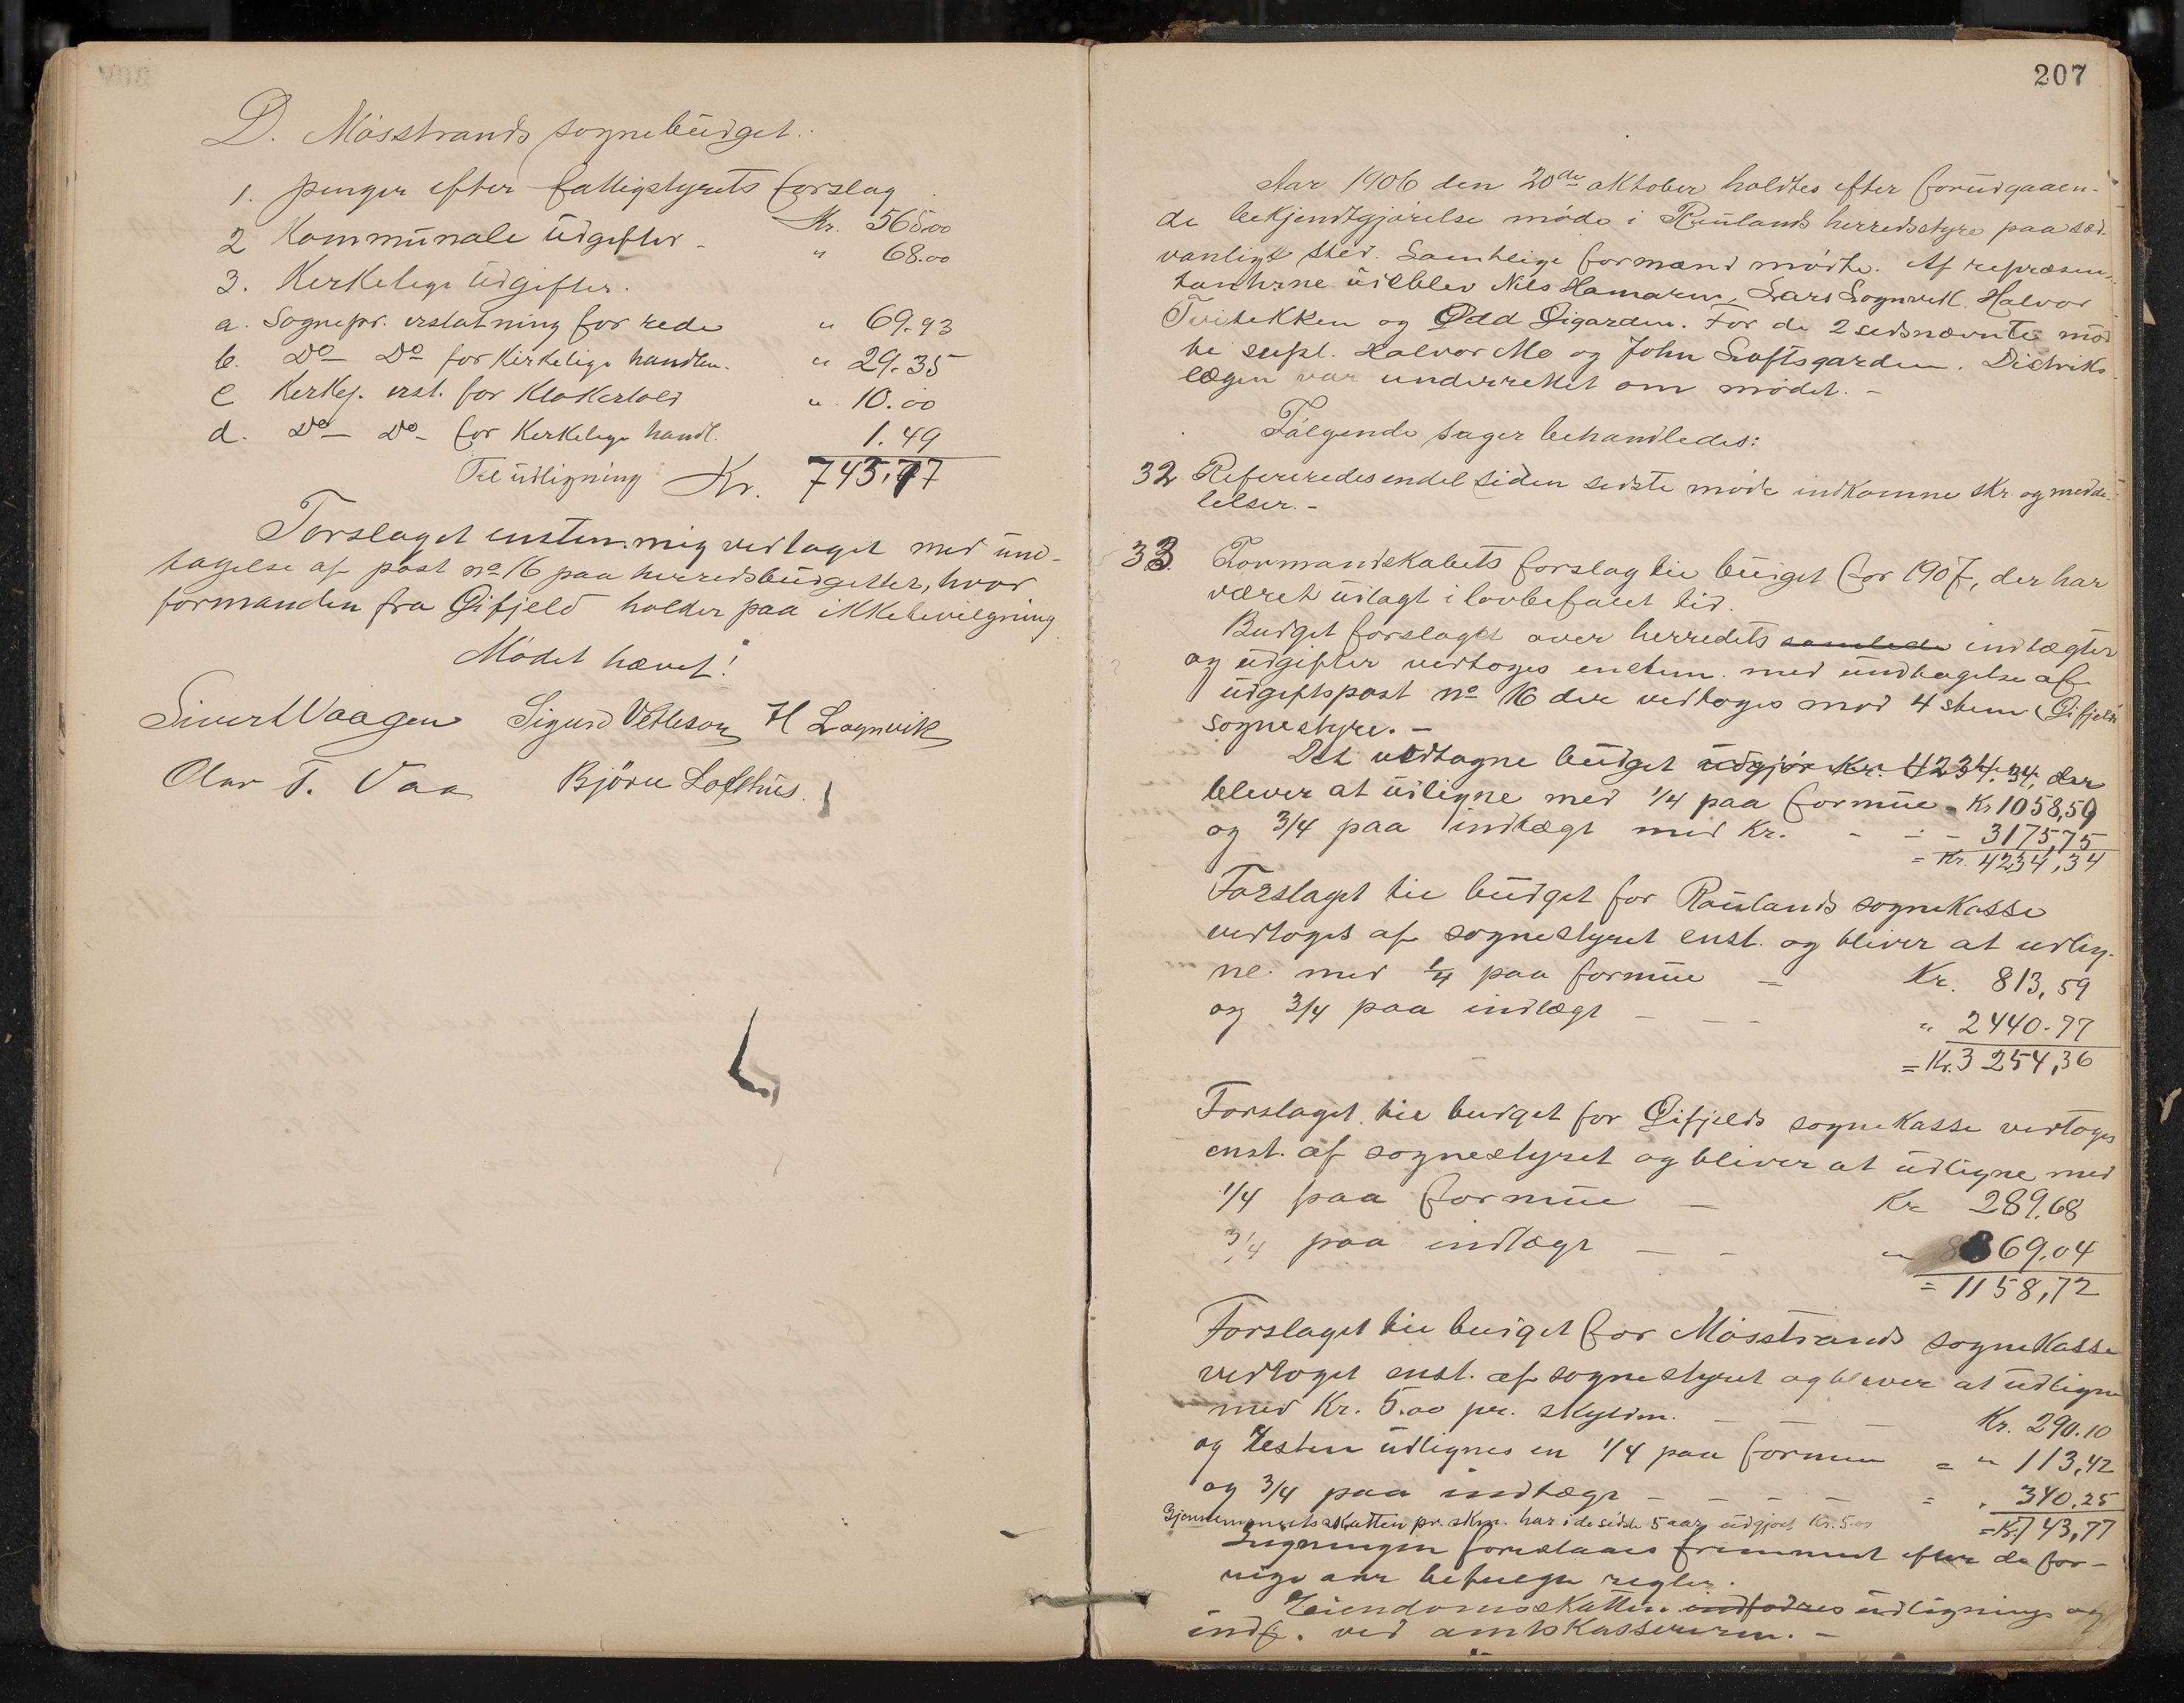 D. Mösstrands sognebudget.
1. penger efter fattigstyrets forslag
Kr. 565.00
2 Kommunale udgifter - " 68.00
3. Kerkelige udgifter.
a. Sognepr. erstatning for rede " 69.93
b. Do - Do for Kirkelige handlen. " 29.35
c Kerkej. erst. for Klokertold " 10.00
d. Do - Do - for Kerkelige handl. 1.49
Til udligning Kr. 743.77
Forslaget enstemmig vedtaget med und-
tagelse af post no 16 paa herredsbudgettet, hvor
formanden fra Øifjeld holder paa ikkebevilgning
Mødet hævet!
Sivert Vaagen Sigurd Vetleson H Lognvik
Olav T. Vaa Björn Lofthus.
207
Aar 1906 den 20de oktober holdtes efter forudgaaen-
de bekjendtgjørelse møde i Raulands herredsstyre paa sæd-
vanligt sted. Samtlige formænd mødte. Af repræsen-
tanterne udeblev Nils Hamaren, Lars Lognvik Halvor
Tveitekken og Odd Øigarden. For de 2 sidsnævnte mød
te supl. Halvor Mo og John Loftsgarden. Distrikts-
lægen var underrettet om mødet. -
Følgende sager behandledes:
32 Refereredes endel siden sidste møde indkomne skr. og medde-
lelser. -
33. Formandskabets forslag til budget for 1907, der har
været udlagt i lovbefalet tid.
Budget forslaget over herredets samlede indtægter
og udgifter vedtoges enstem. med undtagelse af
udgiftspost no 16 der vedtoges mod 4 stem (Øifjelds
sognestyre. -
Det vedtagne budget udgjør Kr. 4234.34, der
blever at udligne med 1/4 paa formue - Kr 1058,59
og 3/4 paa indtægt med Kr. - - - 3175,75
= Kr. 4234,34
Forslaget til budget for Raulands sognekasse
vedtoges af sognestyret enst. og bliver at udlig-
ne med 1/4 paa formue - Kr. 813,59
og 3/4 paa indtægt - - - " 2440.77
= Kr. 3254,36
Forslaget til budget for Øifjelds sognekasse vedtoges
enst. af sognestyret og bliver at udligne med
1/4 paa formue - Kr 289.68
3/4 paa indtægt - - " 869.04
= 1158,72
Forslaget til budget for Mösstrands sognekasse
vedtoget enst. af sognestyret og blever at udligne
med Kr. 5.00 pr. skyldm. - - - Kr. 290.10
og resten udlignes en 1/4 paa formue = " 113,42
og 3/4 paa indtægt - - - - = " 340.25
Gjennemsnitsskatten pr. skm. har i de sidste 5 aar udgjort Kr. 5.00 = Kr. 743,77
Ligningen foreslaaes fremmet efter de for-
rige aar befulgte regler.
Eiendomsskatten indfodres udlignings og
indf. ved amtskassereren. -